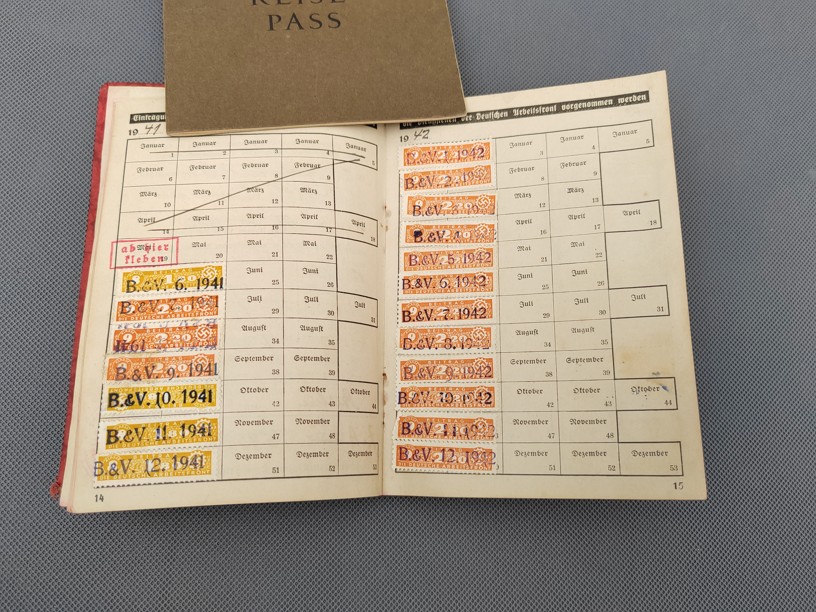 REISE
PASS
Eintragu
die Deutschen der Deutschen Arbeitsfront vorgenommen werden
19 41
Januar Januar Januar Januar Januar
1 2 3 4 5
Februar Februar Februar Februar
6 7 8 9
März März März März
10 11 12 13
April April April April April
14 15 16 17 18
ab hier
kleben
Mai Mai Mai
19 20 21 22
B.&V. 6. 1941 Juni Juni
25 26
B.&V. 7. 1941 Juli Juli Juli
29 30 31
1941 August August
34 35
B.&V. 9. 1941 September September
38 39
B.&V. 10. 1941 Oktober Oktober Oktober
42 43 44
B.&V. 11. 1941 November November
47 48
B.&V. 12. 1941 Dezember Dezember Dezember
51 52 53
14
19 42
B.&V. 1. 1942 Januar Januar Januar
3 4 5
B.&V. 2. 194 Februar Februar
8 9
B.&V. März März
12 13
B.&V. 4. April April April
16 17 18
B.&V. 5. 1942 Mai Mai
21 22
B.&V. 6. 1942 Juni Juni
25 26
B.&V. 7. 1942 Juli Juli Juli
29 30 31
B.&V. 8. 1942 August August
34 35
B.&V. 9. 1942 September September
38 39
B.&V. 10. 1942 Oktober Oktober Oktober
42 43 44
B.&V. 11. 1942 November November
47 48
B.&V. 12. 1942 Dezember Dezember Dezember
51 52 53
15